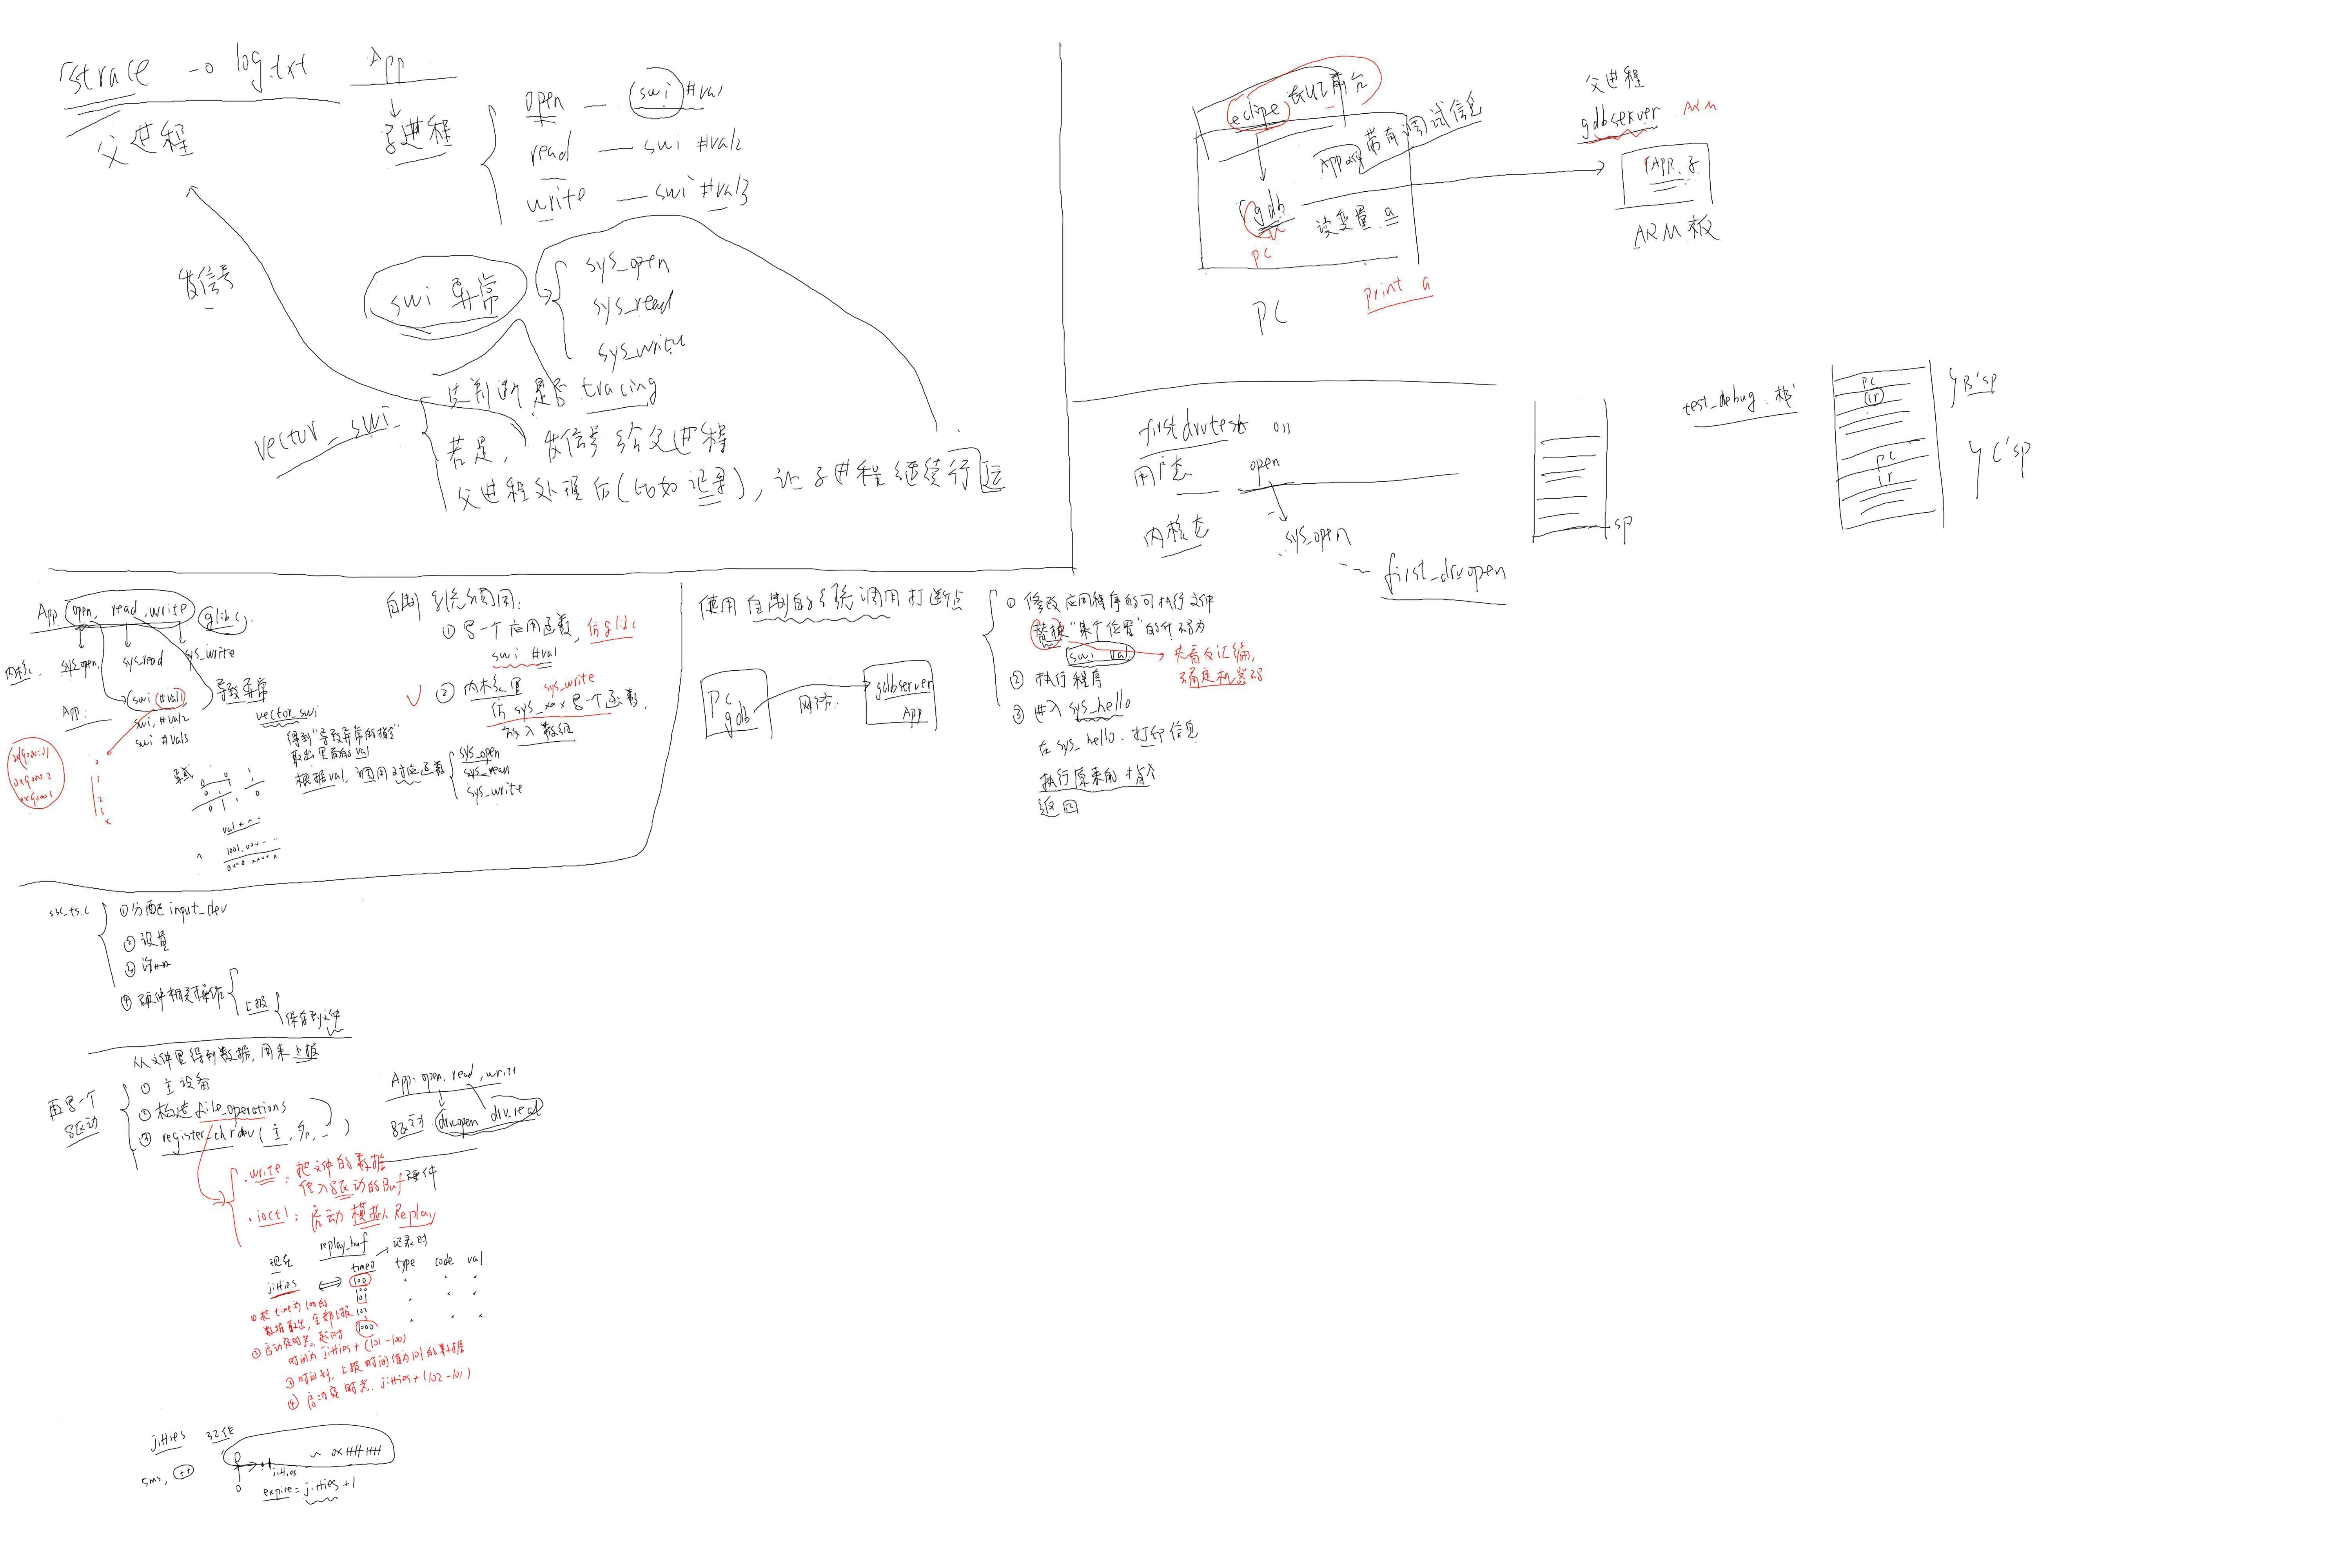 strace -o log.txt App
父进程
子进程
open — swi #val
read — swi #val2
write — swi #val3
发信号
swi 异常
sys_open
sys_read
sys_write
vector_swi
先判断是否 tracing
若是, 发信号给父进程
父进程处理后(比如记录), 让子进程继续运行
eclipse 在UI前台
App 带有调试信息
gdb 读变量 a
PC
print a
PC
父进程
gdbserver ARM
App 子
ARM板
firstdrvtest on
用户态 open
内核态
sys_open
first_drv_open
sp
test_debug 栈
pc
lr
B'sp
pc
lr
C'sp
App open, read, write glibc
内核 sys_open sys_read sys_write
App: swi #val1 导致异常
swi #val2
swi #val3
vector_swi
得到"导致异常的指令"
取出里面的val
根据val, 调用对应函数
sys_open
sys_read
sys_write
异或
0
1
2
3
自制系统调用:
① 写一个应用函数, 仿glibc
swi #val
② 内核里 sys_write
仿sys_xxx写一个函数,
放入数组
使用自制的系统调用打断点
PC
gdb
网络
gdbserver
App
① 修改应用程序的可执行文件
替换"某个位置"的代码为
swi val
先看反汇编,
确定机器码
② 执行程序
③ 进入 sys_hello
在sys_hello: 打印信息
执行原来的指令
返回
s3c_ts.c
①分配input_dev
②设置
③注册
④硬件相关操作
上报
保存到文件
从文件里得到数据, 用来上报
再写一个
驱动
① 主设备
② 构造file_operations
③ register_chrdev(主, 名, )
App: open, read, write
驱动 drv_open drv_read
硬件
.write: 把文件的数据
传入驱动的Buf
.ioctl: 启动模拟 Replay
replay_buf
记录时
现在
time0 type code val
jiffies
100
100
101
102
1000
①把time为100的
数据取出, 全部上报
②启动定时器, 超时
时间为 jiffies + (101-100)
③时间到, 上报时间值为101的数据
④ 启动定时器, jiffies + (102-101)
jiffies 32位
5ms, ++
0
jiffies
expire = jiffies + 1